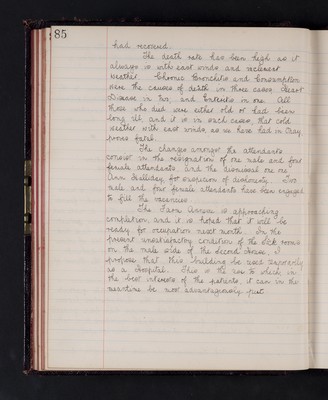 85
had recovered.
The death rate has been high as it
always is with east winds and inclement
weather. Chronic Bronchitis and Consumption
were the causes of death in three cases, Heart
Disease in two, and Enteritis in one. All
those who died were either old or had been
long ill, and it is in such cases, that cold
weather with east winds, as we have had in May,
proves fatal.
The changes amongst the attendants
consist in the resignation of one male and four
female attendants, and the dismissal of one
Ann Halliday, for suspicion of dishonesty. Two
male and four female attendants have been engaged
to fill the vacancies.
The Farm Annexe is approaching
completion, and it is hoped that it will be
ready for occupation next month. In the
present unsatisfactory condition of the sick rooms
on the male side of the Second House, I
propose that this building be used temporarily
as a Hospital. This is the use to which, in
the best interests of the patients, it can in the
meantime be most advantageously put.